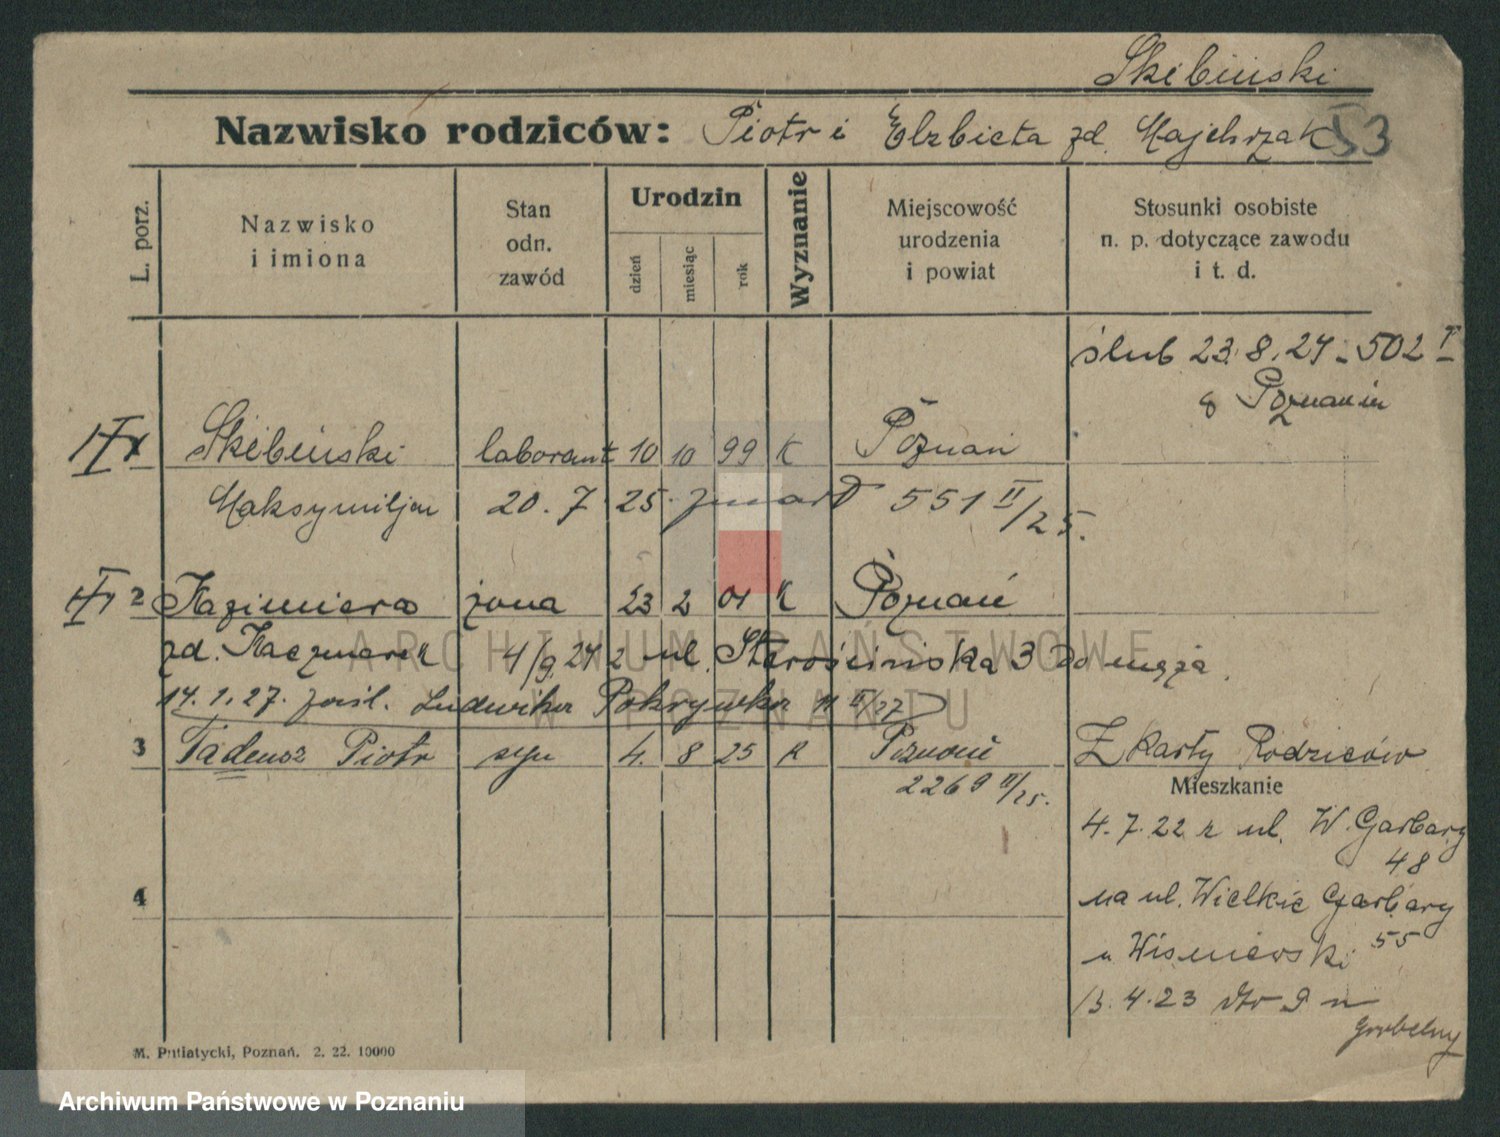 Skibiński
Nazwisko rodziców: Piotr i Elżbieta zd. Majchrzak 53
L. porz.
Nazwisko i imiona
Stan odn. zawód
Urodzin
dzień
miesiąc
rok
Wyznanie
Miejscowość urodzenia i powiat
Stosunki osobiste n. p. dotyczące zawodu i t. d.
ślub 23.8.24 - 502 I
Poznaniu
Skibiński laborant 10 10 99 K Poznań
Maksymiljan 20. 7 25. zmarł 551 II/25.
2 Kazimiera żona 23 2 01 K Poznań
zd. Kaczmarek 4/9. 24 z ul. Starościńska 3 do męża.
14. 1. 27. Ludwika Pokrywka II/27
3 Tadeusz Piotr syn 4. 8 25 K Poznań
2269 II/25.
Z Karty Rodziców
Mieszkanie
4. 7. 22 z ul. W. Garbary
48
na ul. Wielkie Garbary
55
u Wiśniewski
13. 4. 23 dto 9 u
Grobelny
4
M. Putiatycki, Poznań. 2. 22. 10000
ARCHIWUM PAŃSTWOWE
W POZNANIU
Archiwum Państwowe w Poznaniu